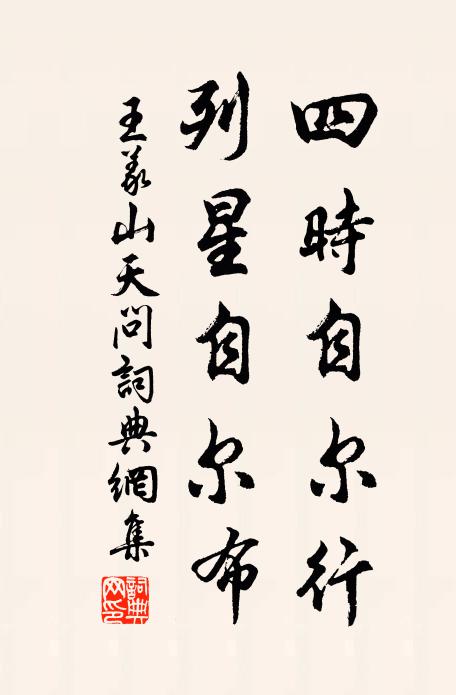 四時自尔行
列星自尔布
王義山天問詞典網集
詞典網印